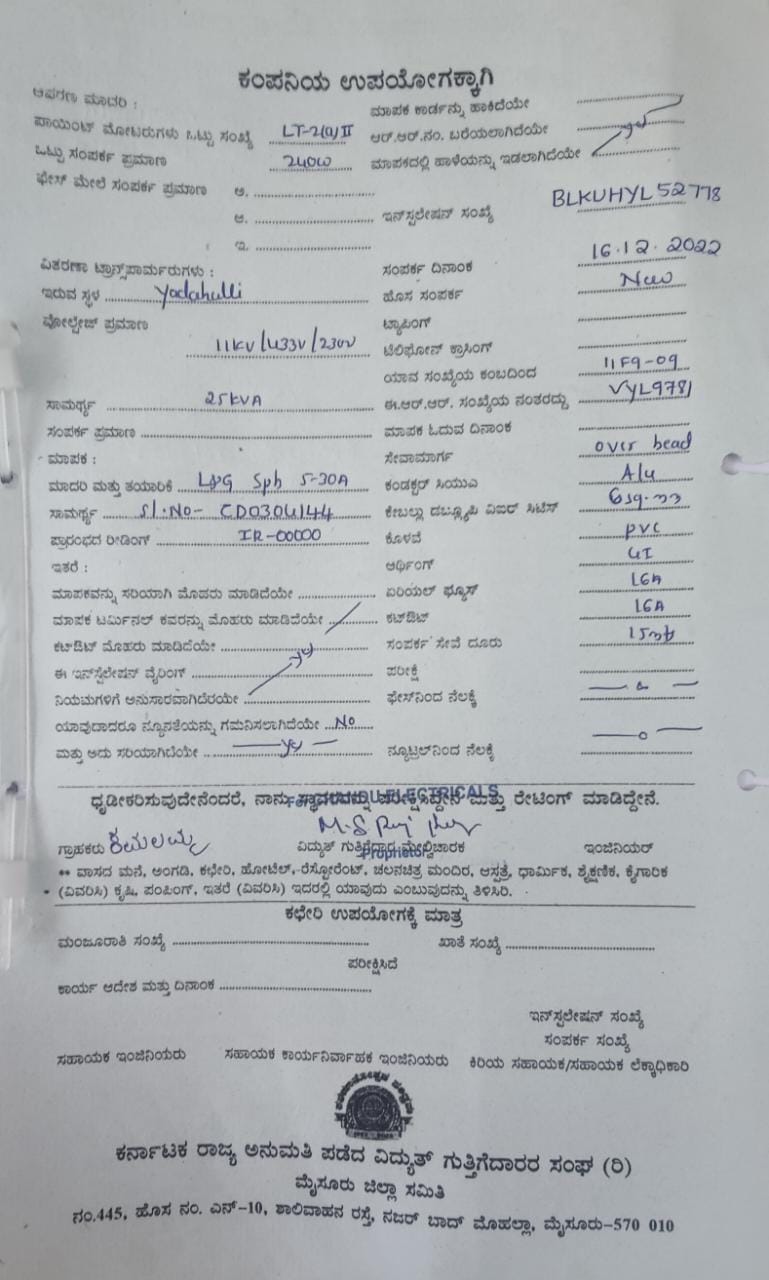 ಕಂಪನಿಯ ಉಪಯೋಗಕ್ಕಾಗಿ
ಆವರಣ ಮಾದರಿ : ಮಾಪಕ ಕಾರ್ಡನ್ನು ಹಾಕಿದೆಯೇ
ಪಾಯಿಂಟ್ ಮೋಟರುಗಳು ಒಟ್ಟು ಸಂಖ್ಯೆ LT-2(a)II ಆರ್.ಆರ್.ನಂ. ಬರೆಯಲಾಗಿದೆಯೇ
ಒಟ್ಟು ಸಂಪರ್ಕ ಪ್ರಮಾಣ 240W ಮಾಪಕದಲ್ಲಿ ಹಾಳೆಯನ್ನು ಇಡಲಾಗಿದೆಯೇ yes
ಫೇಸ್ ಮೇಲೆ ಸಂಪರ್ಕ ಪ್ರಮಾಣ ಅ.
ಆ. ಇನ್‌ಸ್ಟಲೇಷನ್ ಸಂಖ್ಯೆ BLKUHYL52778
ಇ.
ವಿತರಣಾ ಟ್ರಾನ್ಸ್‌ಪಾರ್ಮರುಗಳು : ಸಂಪರ್ಕ ದಿನಾಂಕ 16.12.2022
ಇರುವ ಸ್ಥಳ Yadahulli ಹೊಸ ಸಂಪರ್ಕ New
ವೋಲ್ಟೇಜ್ ಪ್ರಮಾಣ ಟ್ಯಾಪಿಂಗ್
11KV/433V/230V ಟೆಲಿಫೋನ್ ಕ್ರಾಸಿಂಗ್
ಯಾವ ಸಂಖ್ಯೆಯ ಕಂಬದಿಂದ 11F9-09
ಸಾಮರ್ಥ್ಯ 25KVA ಈ.ಆರ್.ಆರ್. ಸಂಖ್ಯೆಯ ನಂತರದ್ದು VYL9781
ಸಂಪರ್ಕ ಪ್ರಮಾಣ ಮಾಪಕ ಓದುವ ದಿನಾಂಕ
ಮಾಪಕ : ಸೇವಾಮಾರ್ಗ over head
ಮಾದರಿ ಮತ್ತು ತಯಾರಿಕೆ L&G Sph 5-30A ಕಂಡಕ್ಟರ್ ಸಿಯುಎ Alu
ಸಾಮರ್ಥ್ಯ Sl.No- CD0304144 ಕೇಬಲ್ಲು ಡಬ್ಲ್ಯೂಪಿ ವಿಐರ್ ಸಿಟಿಸ್ 6sq.mm
ಪ್ರಾರಂಭದ ರೀಡಿಂಗ್ IR-00000 ಕೊಳವೆ PVC
ಇತರೆ : ಆರ್ಥಿಂಗ್ GI
ಮಾಪಕವನ್ನು ಸರಿಯಾಗಿ ಮೊದರು ಮಾಡಿದೆಯೇ ಏರಿಯಲ್ ಫ್ಯೂಸ್ 16A
ಮಾಪಕ ಟರ್ಮಿನಲ್ ಕವರನ್ನು ಮೊಹರು ಮಾಡಿದೆಯೇ ಕಟ್‌ಔಟ್ 16A
ಕಟ್‌ಔಟ್ ಮೊಹರು ಮಾಡಿದೆಯೇ ಸಂಪರ್ಕ ಸೇವೆ ದೂರು 15mt
ಈ ಇನ್‌ಸ್ಟಲೇಷನ್ ವೈರಿಂಗ್ yes ಪರೀಕ್ಷೆ
ನಿಯಮಗಳಿಗೆ ಅನುಸಾರವಾಗಿದೆರಯೇ ಫೇಸ್‌ನಿಂದ ನೆಲಕ್ಕೆ
ಯಾವುದಾದರೂ ನ್ಯೂನತೆಯನ್ನು ಗಮನಿಸಲಾಗಿದೆಯೇ No
ಮತ್ತು ಅದು ಸರಿಯಾಗಿದೆಯೇ yes ನ್ಯೂಟ್ರಲ್‌ನಿಂದ ನೆಲಕ್ಕೆ
ಧೃಡೀಕರಿಸುವುದೇನೆಂದರೆ, ನಾನು ಸ್ಥಾವರವನ್ನು ಪರೀಕ್ಷಿಸಿದ್ದೇನೆ ಮತ್ತು ರೇಟಿಂಗ್ ಮಾಡಿದ್ದೇನೆ.
ELECTRICALS
ಗ್ರಾಹಕರು ಕಮಲಮ್ಮ ವಿದ್ಯುತ್ ಗುತ್ತಿಗೆದಾರ ಮೇಲ್ವಿಚಾರಕ ಇಂಜಿನಿಯರ್
Proprietor
** ವಾಸದ ಮನೆ, ಅಂಗಡಿ, ಕಛೇರಿ, ಹೋಟೆಲ್,-ರೆಸ್ಟೋರೆಂಟ್, ಚಲನಚಿತ್ರ ಮಂದಿರ, ಆಸ್ಪತ್ರೆ, ಧಾರ್ಮಿಕ, ಶೈಕ್ಷಣಿಕ, ಕೈಗಾರಿಕ
(ವಿವರಿಸಿ) ಕೃಷಿ, ಪಂಪಿಂಗ್, ಇತರೆ (ವಿವರಿಸಿ) ಇದರಲ್ಲಿ ಯಾವುದು ಎಂಬುವುದನ್ನು ತಿಳಿಸಿರಿ.
ಕಛೇರಿ ಉಪಯೋಗಕ್ಕೆ ಮಾತ್ರ
ಮಂಜೂರಾತಿ ಸಂಖ್ಯೆ ಖಾತೆ ಸಂಖ್ಯೆ
ಪರೀಕ್ಷಿಸಿದೆ
ಕಾರ್ಯ ಆದೇಶ ಮತ್ತು ದಿನಾಂಕ
ಇನ್‌ಸ್ಟಲೇಷನ್ ಸಂಖ್ಯೆ
ಸಂಪರ್ಕ ಸಂಖ್ಯೆ
ಸಹಾಯಕ ಇಂಜಿನಿಯರು ಸಹಾಯಕ ಕಾರ್ಯನಿರ್ವಾಹಕ ಇಂಜಿನಿಯರು ಕಿರಿಯ ಸಹಾಯಕ/ಸಹಾಯಕ ಲೆಕ್ಕಾಧಿಕಾರಿ
ಕರ್ನಾಟಕ ರಾಜ್ಯ ಅನುಮತಿ ಪಡೆದ ವಿದ್ಯುತ್ ಗುತ್ತಿಗೆದಾರರ ಸಂಘ (ರಿ)
ಮೈಸೂರು ಜಿಲ್ಲಾ ಸಮಿತಿ
ನಂ.445, ಹೊಸ ನಂ. ಎನ್-10, ಶಾಲಿವಾಹನ ರಸ್ತೆ, ನಜರ್ ಬಾದ್ ಮೊಹಲ್ಲಾ, ಮೈಸೂರು-570 010